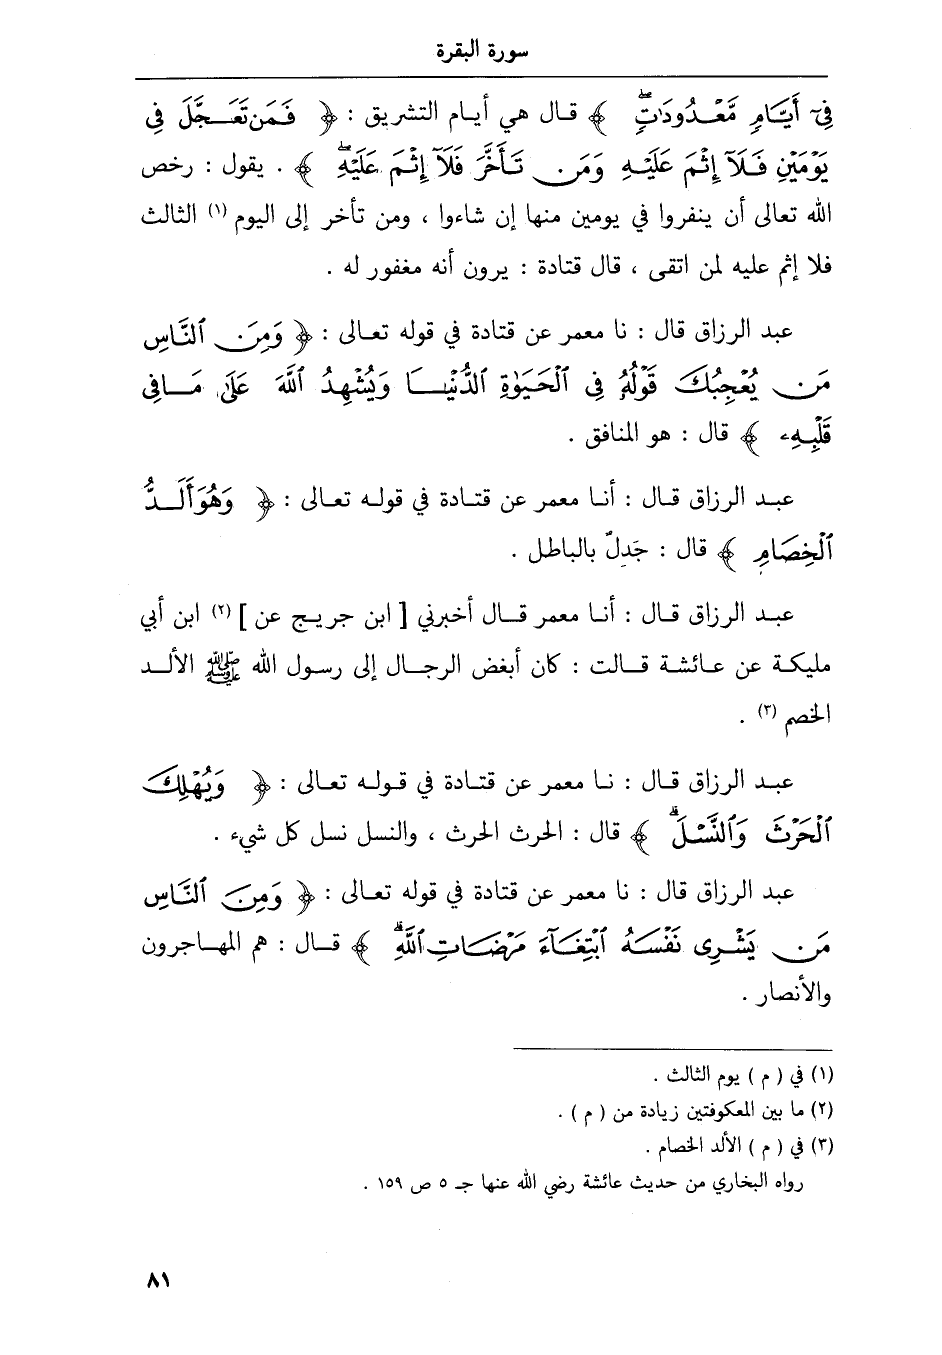 سورة البقرة
فِىٓ أَيَّامٍ مَّعْدُودَٰتٍ ۚ ﴾ قال هي أيام التشريق : ﴿ فَمَن تَعَجَّلَ فِى
يَوْمَيْنِ فَلَآ إِثْمَ عَلَيْهِ وَمَن تَأَخَّرَ فَلَآ إِثْمَ عَلَيْهِ ۚ ﴾ . يقول : رخص
الله تعالى أن ينفروا في يومين منها إن شاءوا ، ومن تأخر إلى اليوم (١) الثالث
فلا إثم عليه لمن اتقى ، قال قتادة : يرون أنه مغفور له .
عبد الرزاق قال : نا معمر عن قتادة في قوله تعالى : ﴿ وَمِنَ ٱلنَّاسِ
مَن يُعْجِبُكَ قَوْلُهُۥ فِى ٱلْحَيَوٰةِ ٱلدُّنْيَا وَيُشْهِدُ ٱللَّهَ عَلَىٰ مَا فِى
قَلْبِهِۦ ﴾ قال : هو المنافق .
عبد الرزاق قال : أنا معمر عن قتادة في قوله تعالى : ﴿ وَهُوَ أَلَدُّ
ٱلْخِصَامِ ﴾ قال : جَدِلٌ بالباطل .
عبد الرزاق قال : أنا معمر قال أخبرني [ ابن جريج عن ] (٢) ابن أبي
مليكة عن عائشة قالت : كان أبغض الرجال إلى رسول الله ﷺ الألد
الخصم (٣) .
عبد الرزاق قال : نا معمر عن قتادة في قوله تعالى : ﴿ وَيُهْلِكَ
ٱلْحَرْثَ وَٱلنَّسْلَ ۗ ﴾ قال : الحرث الحرث ، والنسل نسل كل شيء .
عبد الرزاق قال : نا معمر عن قتادة في قوله تعالى : ﴿ وَمِنَ ٱلنَّاسِ
مَن يَشْرِى نَفْسَهُ ٱبْتِغَآءَ مَرْضَاتِ ٱللَّهِ ۗ ﴾ قال : هم المهاجرون
والأنصار .
(١) في ( م ) يوم الثالث .
(٢) ما بين المعكوفتين زيادة من ( م ) .
(٣) في ( م ) الألد الخصام .
رواه البخاري من حديث عائشة رضي الله عنها جـ ٥ ص ١٥٩ .
٨١